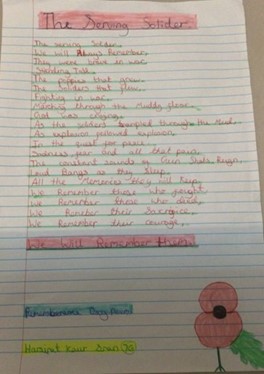 The Serving Solider
The serving Solider.
We will Always Remember.
They were brave in war.
Standing Tall.
The poppies that grow.
The Soldiers that flow.
Fighting in war.
Marching through the muddy floor.
God was crying.
As the soldiers through the Mud.
As explosion followed explosion.
In the quest for peace.
Sadness, fear and all that pain.
The constant sounds of Gun Shots Reign.
Loud Bangs as they Sleep.
All the Memories they will Keep.
We Remember those who fought.
We Remember those who died.
We Remeber their Sacrafice.
We Remember their courage.
We Will Remember them
Rememberance Day Poem
Harpreet Kaur